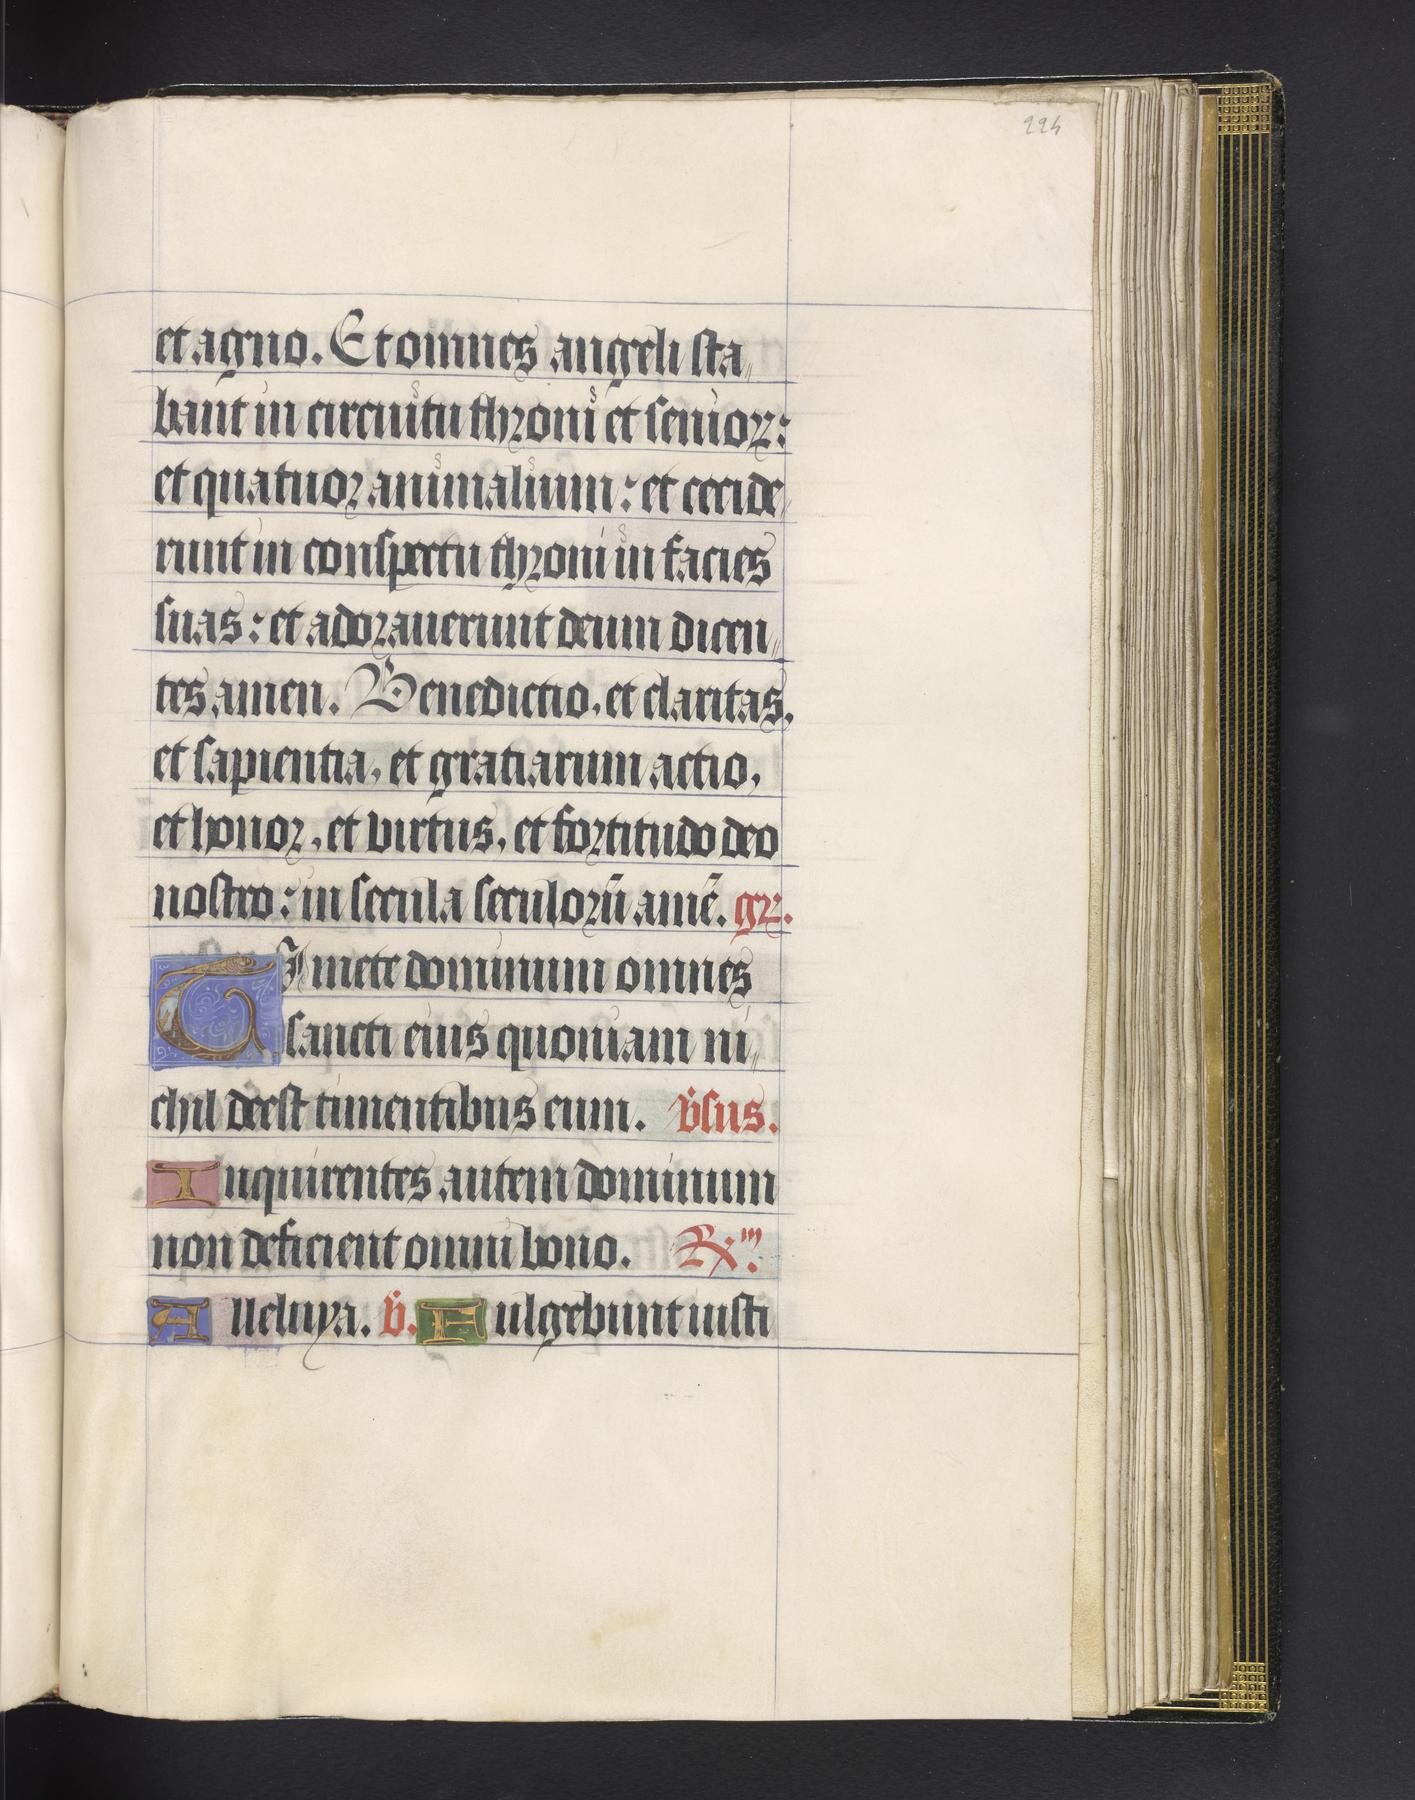 224
et agno. Et omnes angeli sta〃
bant in circuitu throni et senioꝝ:
et quatuor animalium: et cecide〃
runt in conspectu throni in facies
suas: et adorauerunt deum dicen〃
tes amen. Benedictio, et claritas,
et sapientia, et gratiarum actio,
et honor, et virtus, et fortitudo deo
nostro: in secula seculorū amē. gꝝ.
TImete dominum omnes
sancti eius quoniam ni〃
chil deest timentibus eum. v̄sus.
Inquirentes autem dominum
non deficient omni bono. R̸m.
Alleluya. v̄. Fulgebunt iusti